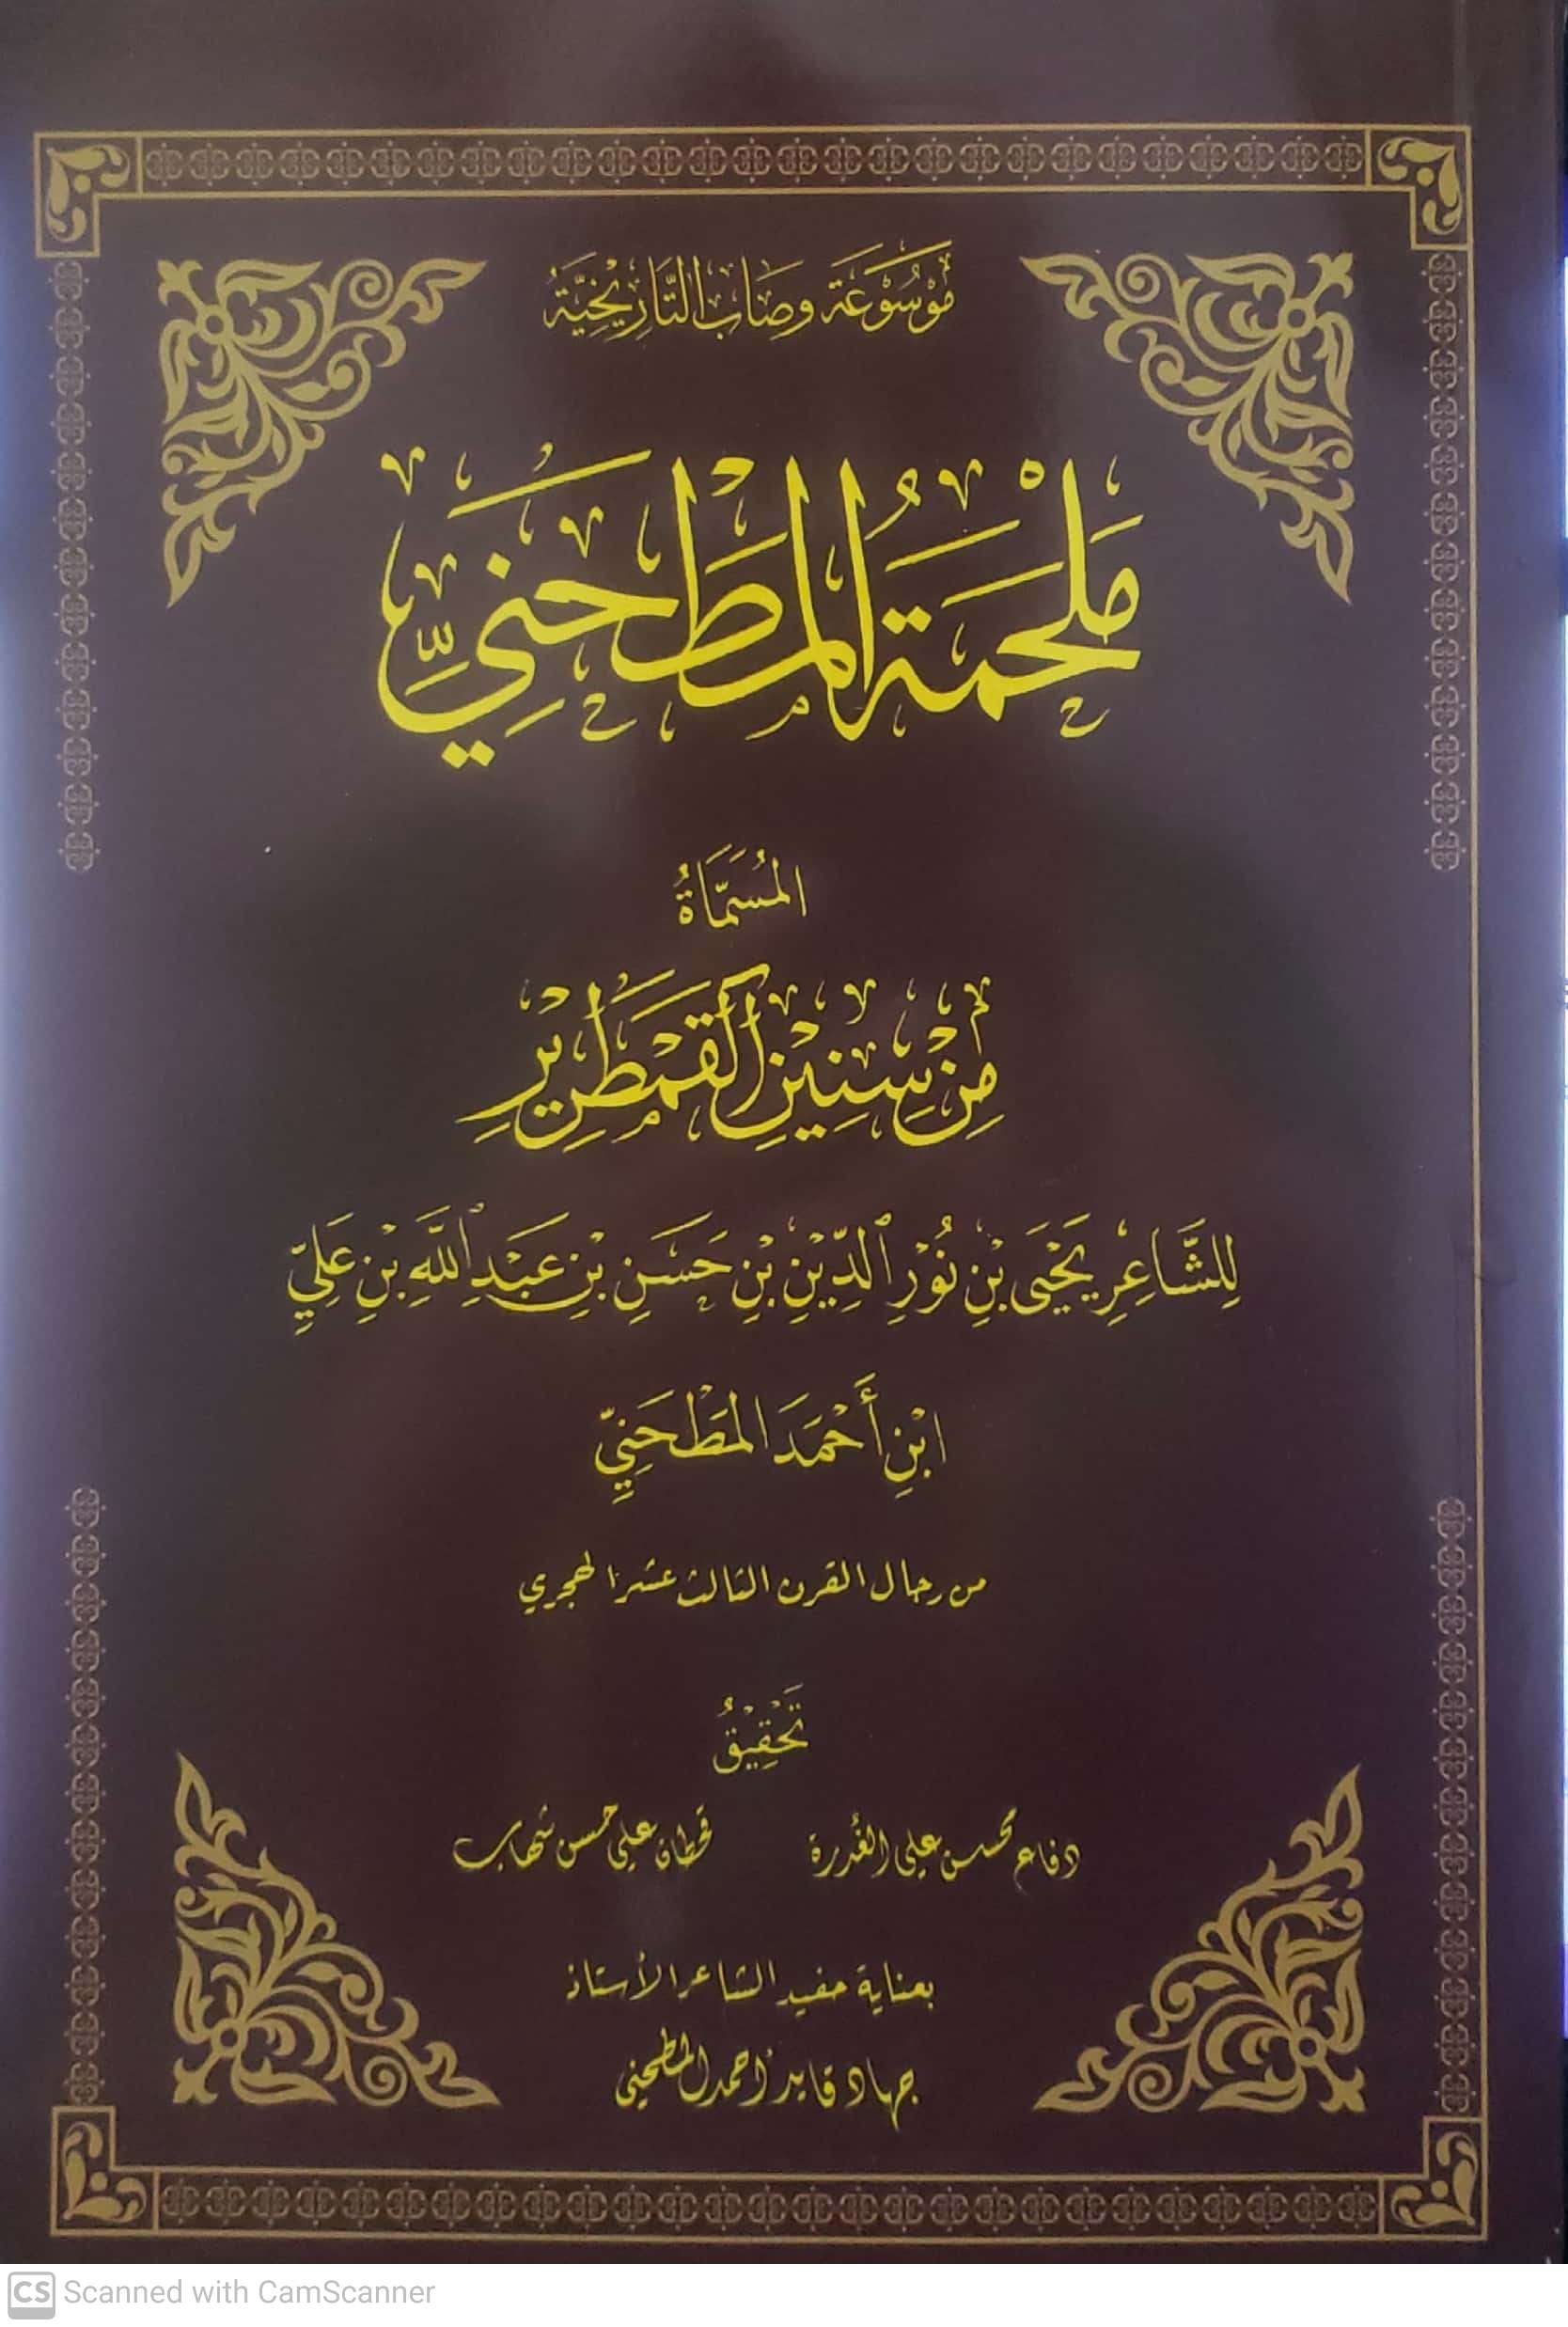 مَوْسُوْعَة وصَاب التَّارِيْخِيَّةُ
مَلْحَمَةُ الْمَطْحَنِيِّ
المُسَمَّاةُ
مِنْ سِنِيْنِ الْقَمْطَرِيْرِ
لِلشَّاعِرِ يَحْيَى بْنِ نُوْرِ ٱلدِّيْنِ بْنِ حَسَنِ بْنِ عَبْدِ اللَّهِ بْنِ عَلِيِّ
ابْنِ أَحْمَدَ المَطْحَنِيِّ
من رجال القرن الثالث عشر الهجري
تَحْقِيْقُ
دفاع محسن علي الغُدرة قحطان علي حسن شهاب
بعناية حفيد الشاعر الأستاذ
جهاد قايد أحمد المطحني
CS Scanned with CamScanner